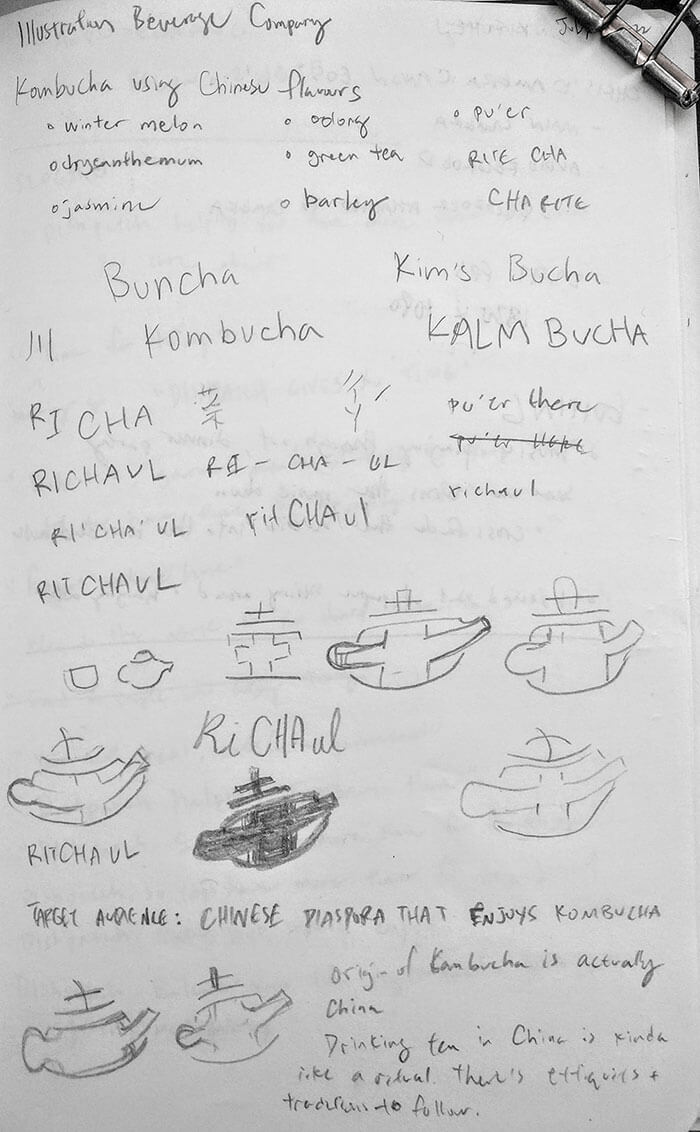 Illustration Beverage Company
July
Kombucha using Chinese flavours
• winter melon
• oolong
• pu'er
• chrysanthemum
• green tea
RITE CHA
• jasmine
• barley
CHA RITE
Buncha
Kim's Bucha
Kombucha
KALM BUCHA
RICHA 茶
pu'er there
pu'er HERE
RICHAUL RI - CHA - UL
richaul
RI'CHA'UL
ritCHAul
RITCHAUL
RiCHAul
RITCHAUL
TARGET AUDIENCE: CHINESE DIASPORA THAT ENJOYS KOMBUCHA
Origin of Kambucha is actually
China
Drinking tea in China is kinda
like a ritual. There's ettiquites +
traditions to follow.